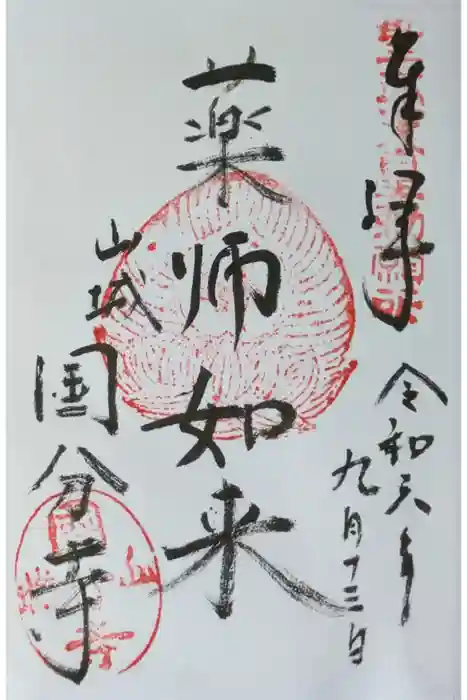 奉拝
令和六年
九月十三日
薬師如来
山城
国分寺